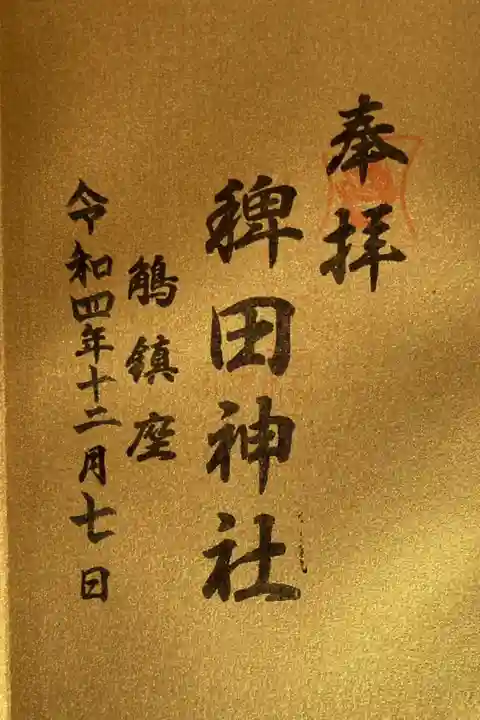 奉拝
稗田神社
鵤鎮座
令和四年十二月七日